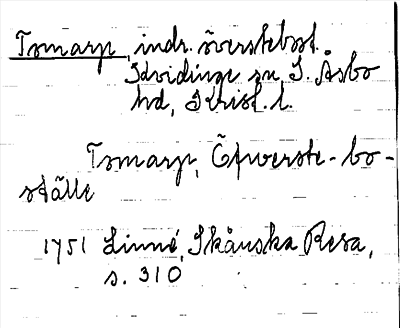 Tomarp indr. överstebost.
Kvidinge sn, S. Åsbo
hd, Krist. l.
Tomarp, Öfwerste-bo-
ställe
1751 Linné, Skånska Resa,
s. 310